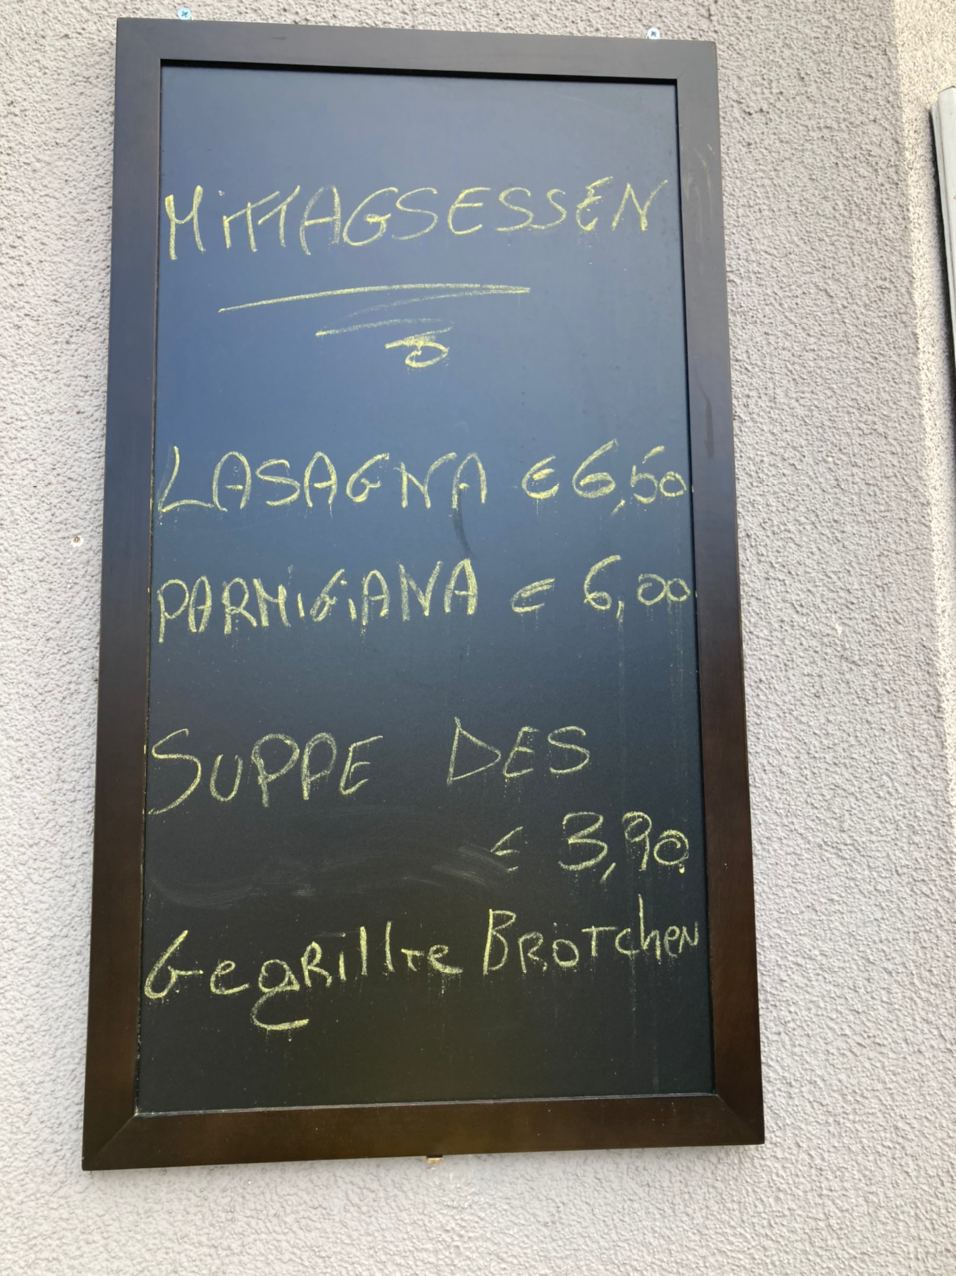 MiTTAGSESSEN
LASAGNA € 6,50
PARMiGiANA € 6,00
SUPPE DES
€ 3,90
GegRillte BROTchen